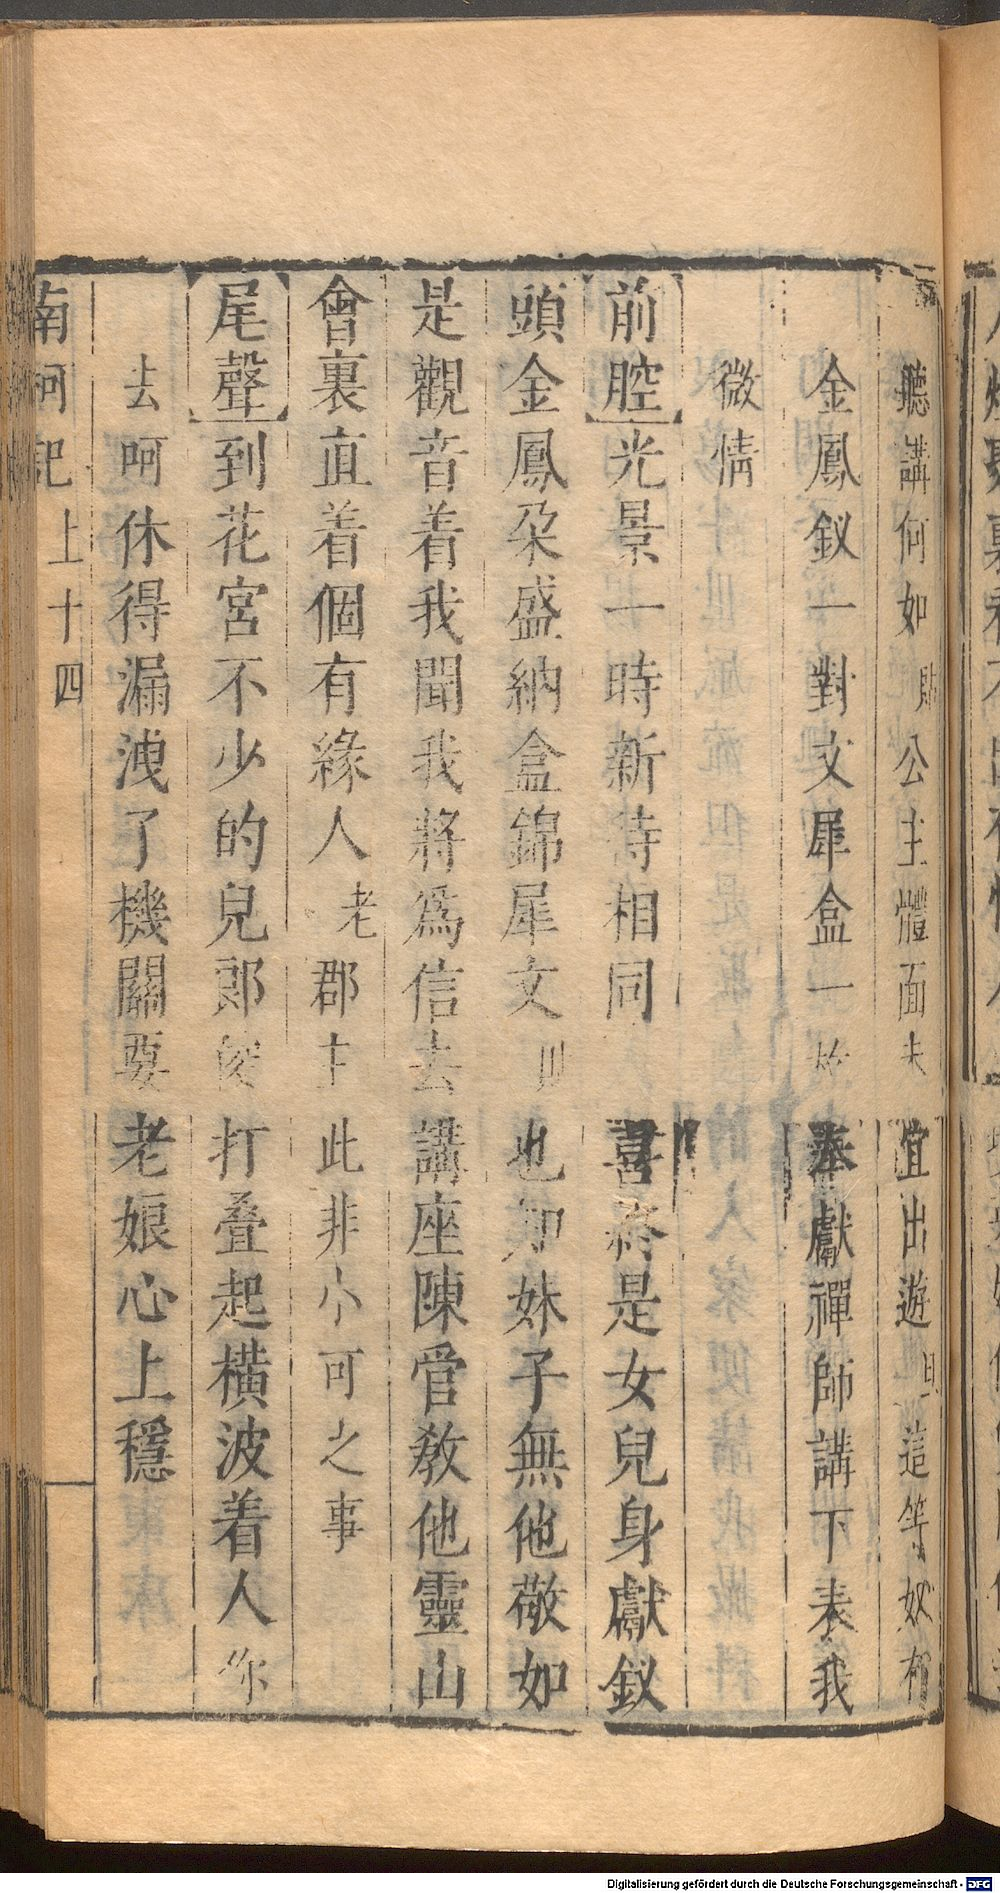 聽講何如 貼 公主體面 宜出遊 旦 這等奴有
金鳳釵一對文犀盒一枚奉獻禪師講下表我
微情
【前腔】光景一時新待相同喜終是女兒身獻釵
頭金鳳朶盛納盒錦犀文 也 妹子無他敬如
是觀音着我聞我將爲信去講座陳管教他靈山
會裏直着個有緣人 老 郡主此非小可之事
【尾聲】到花宮不少的兒郎 打叠起橫波着人你
去呵休得漏洩了機關要老娘心上穩
南柯記 上 十四
Digitalisierung gefördert durch die Deutsche Forschungsgemeinschaft - DFG